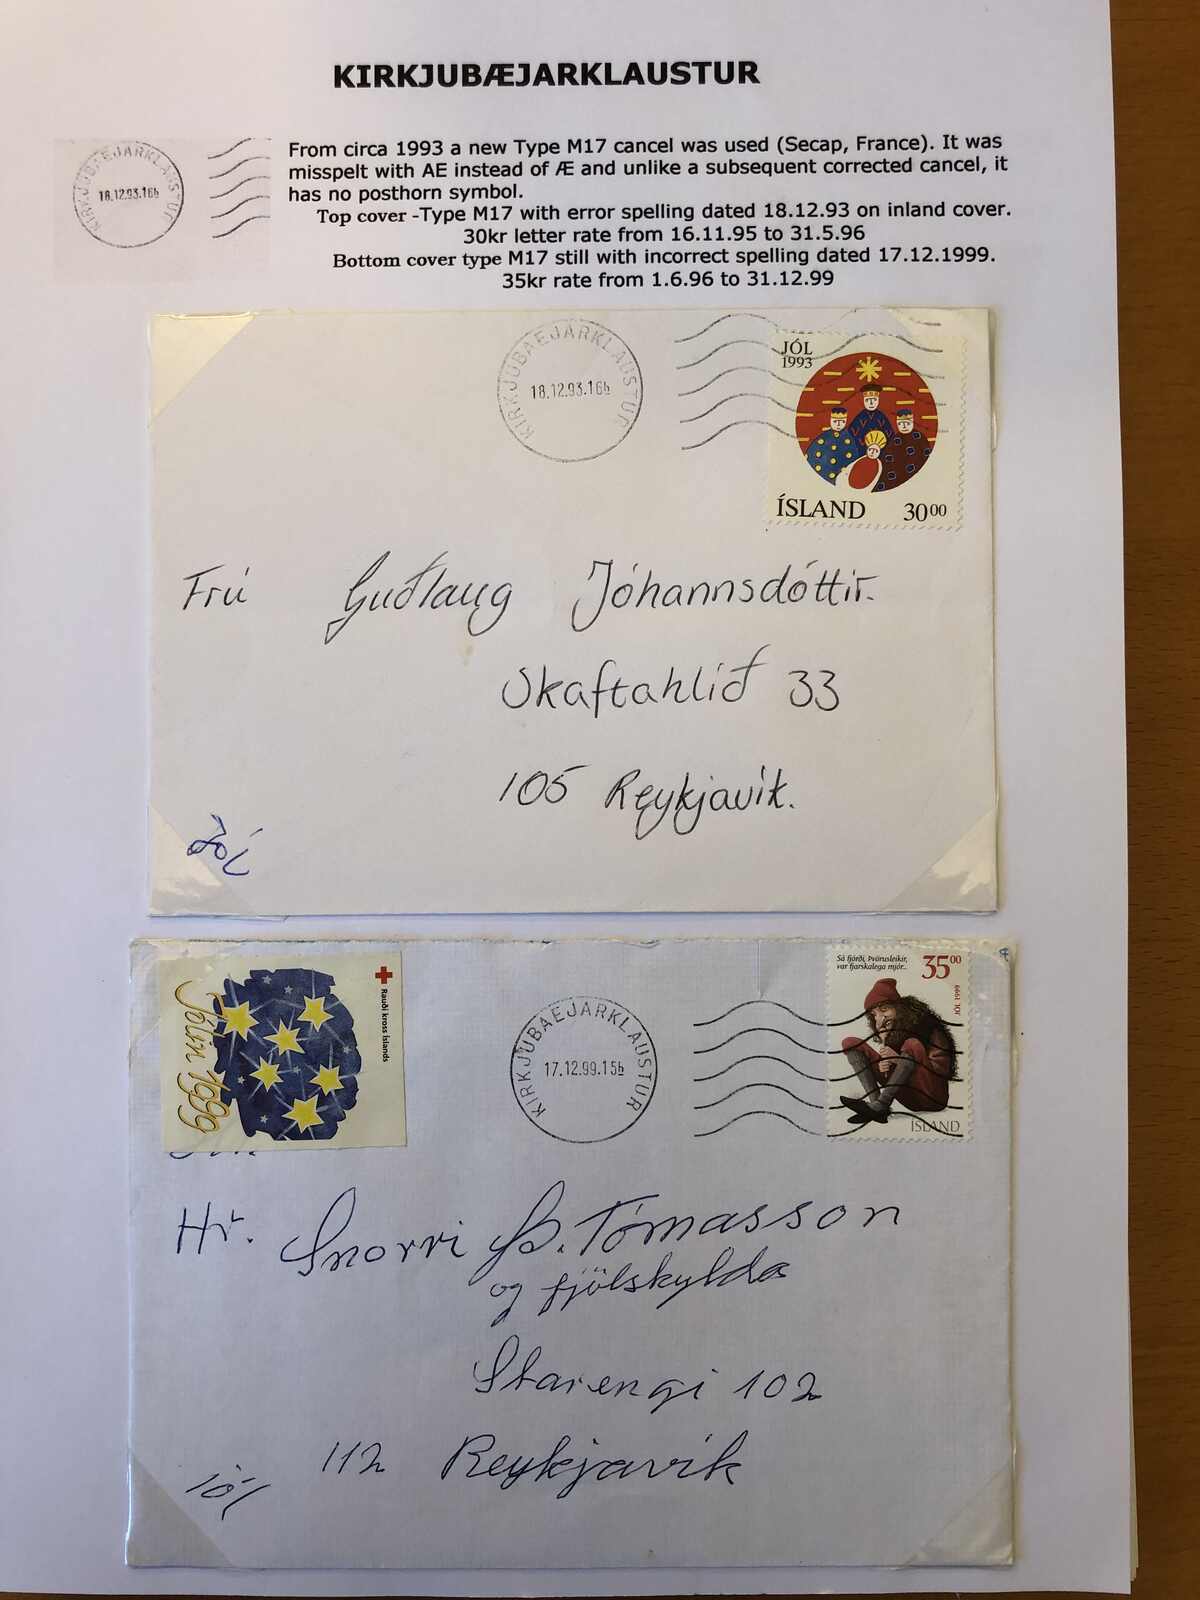 KIRKJUBÆJARKLAUSTUR
KIRKJUBAEJARKLAUSTUR
18.12.93.16h
From circa 1993 a new Type M17 cancel was used (Secap, France). It was
misspelt with AE instead of Æ and unlike a subsequent corrected cancel, it
has no posthorn symbol.
Top cover -Type M17 with error spelling dated 18.12.93 on inland cover.
30kr letter rate from 16.11.95 to 31.5.96
Bottom cover type M17 still with incorrect spelling dated 17.12.1999.
35kr rate from 1.6.96 to 31.12.99
KIRKJUBAEJARKLAUSTUR
18.12.93.16h
JÓL
1993
ÍSLAND 30⁰⁰
Frú Guðlaug Jóhannsdóttir.
Skaftahlíð 33
105 Reykjavík.
Jól
Jólin 1999
Rauði kross Íslands
KIRKJUBAEJARKLAUSTUR
17.12.99.15h
Sá fjórði, Þvörusleikir,
var fjarskalega mjór...
35⁰⁰
JÓL 1999
ÍSLAND
Hr. Snorri Þ. Tómasson
og fjölskylda
Starengi 102
112 Reykjavík
jól